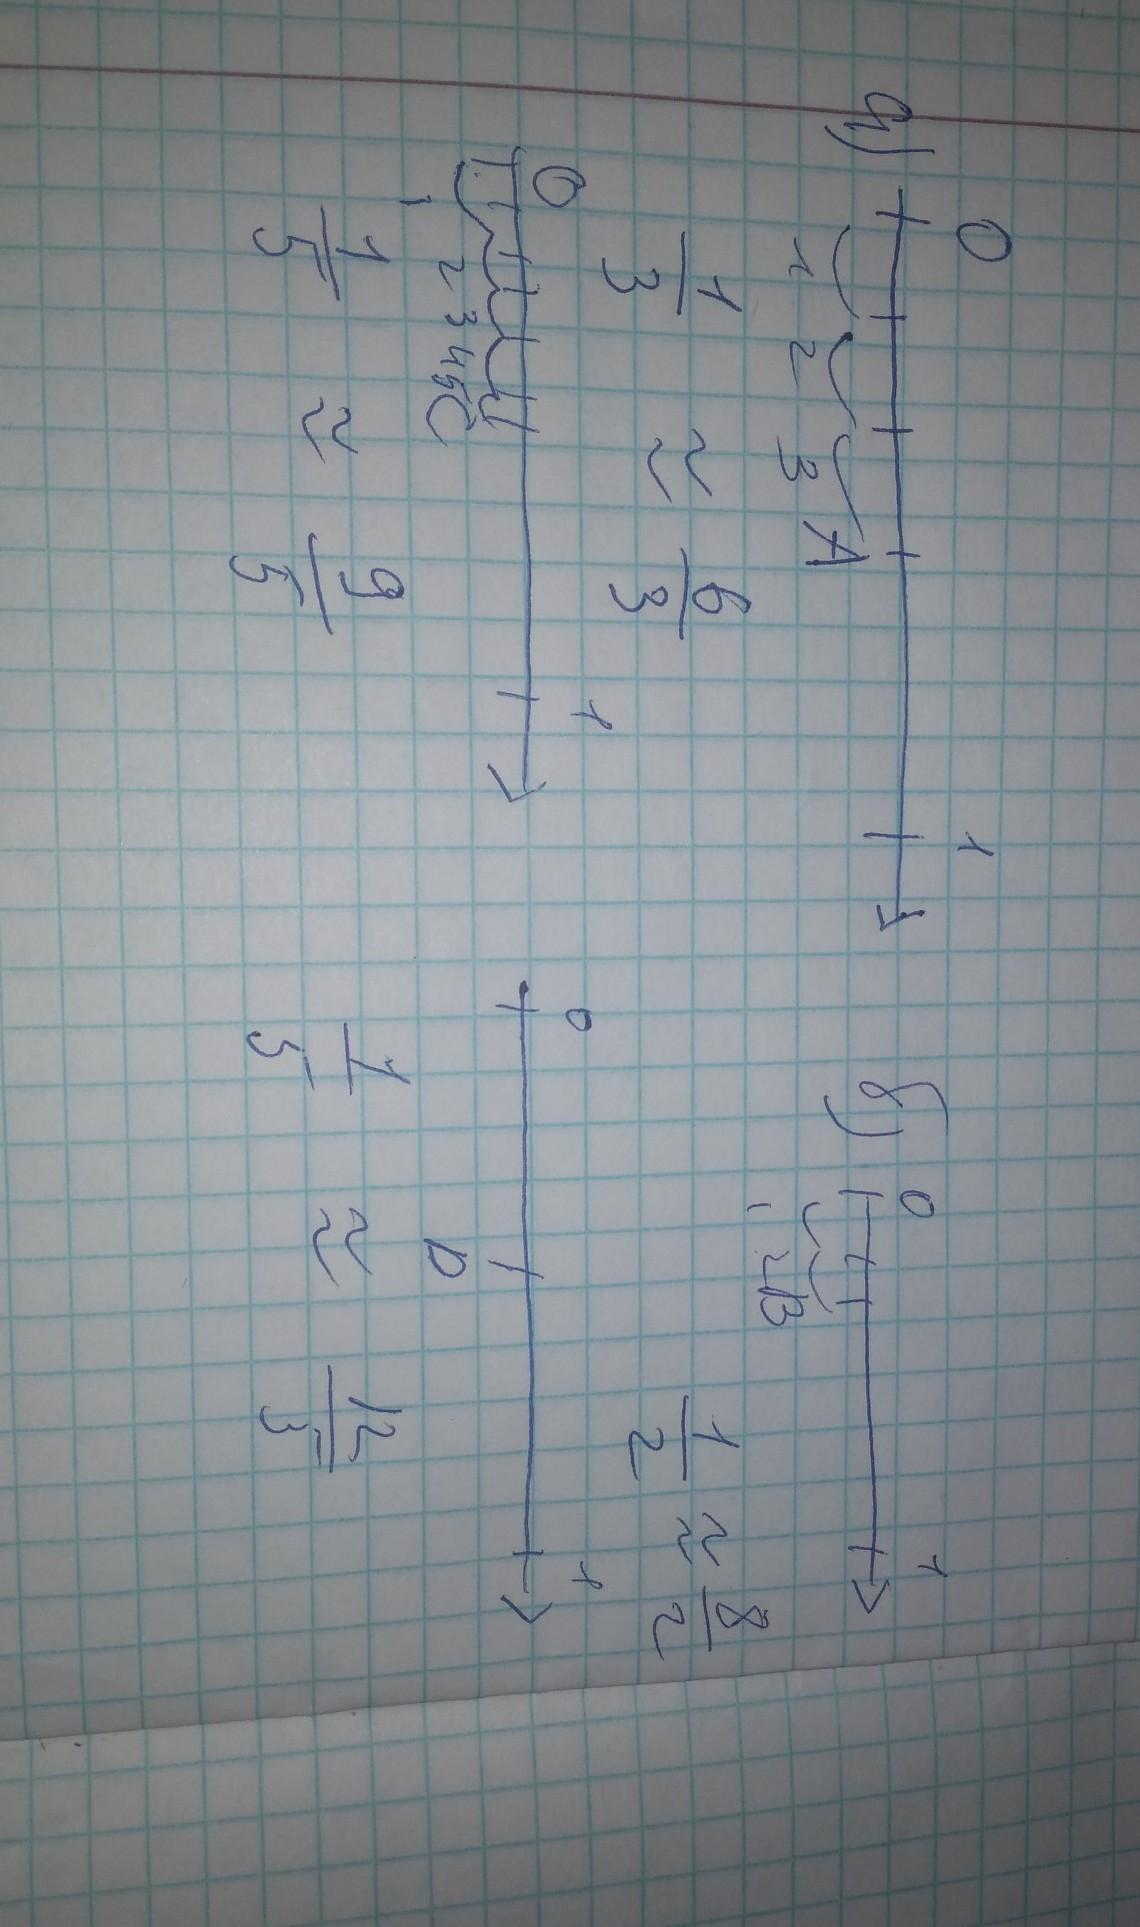 а) 0 1
1 2 3 A
1/3 ≈ 6/3
б) 0 1
1 2 B
1/2 ≈ 8/2
0 1
1 2 3 4 5 C
1/5 ≈ 9/5
0 1
D
1/5 ≈ 12/5